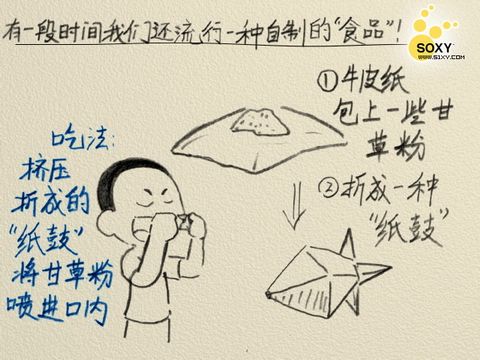 有一段时间我们还流行一种自制的"食品"!
SOXY
WWW.51XY.COM
①牛皮纸
包上一些甘
草粉
②折成一种
"纸鼓"
吃法:
挤压
折成的
"纸鼓"
将甘草粉
喷进口内